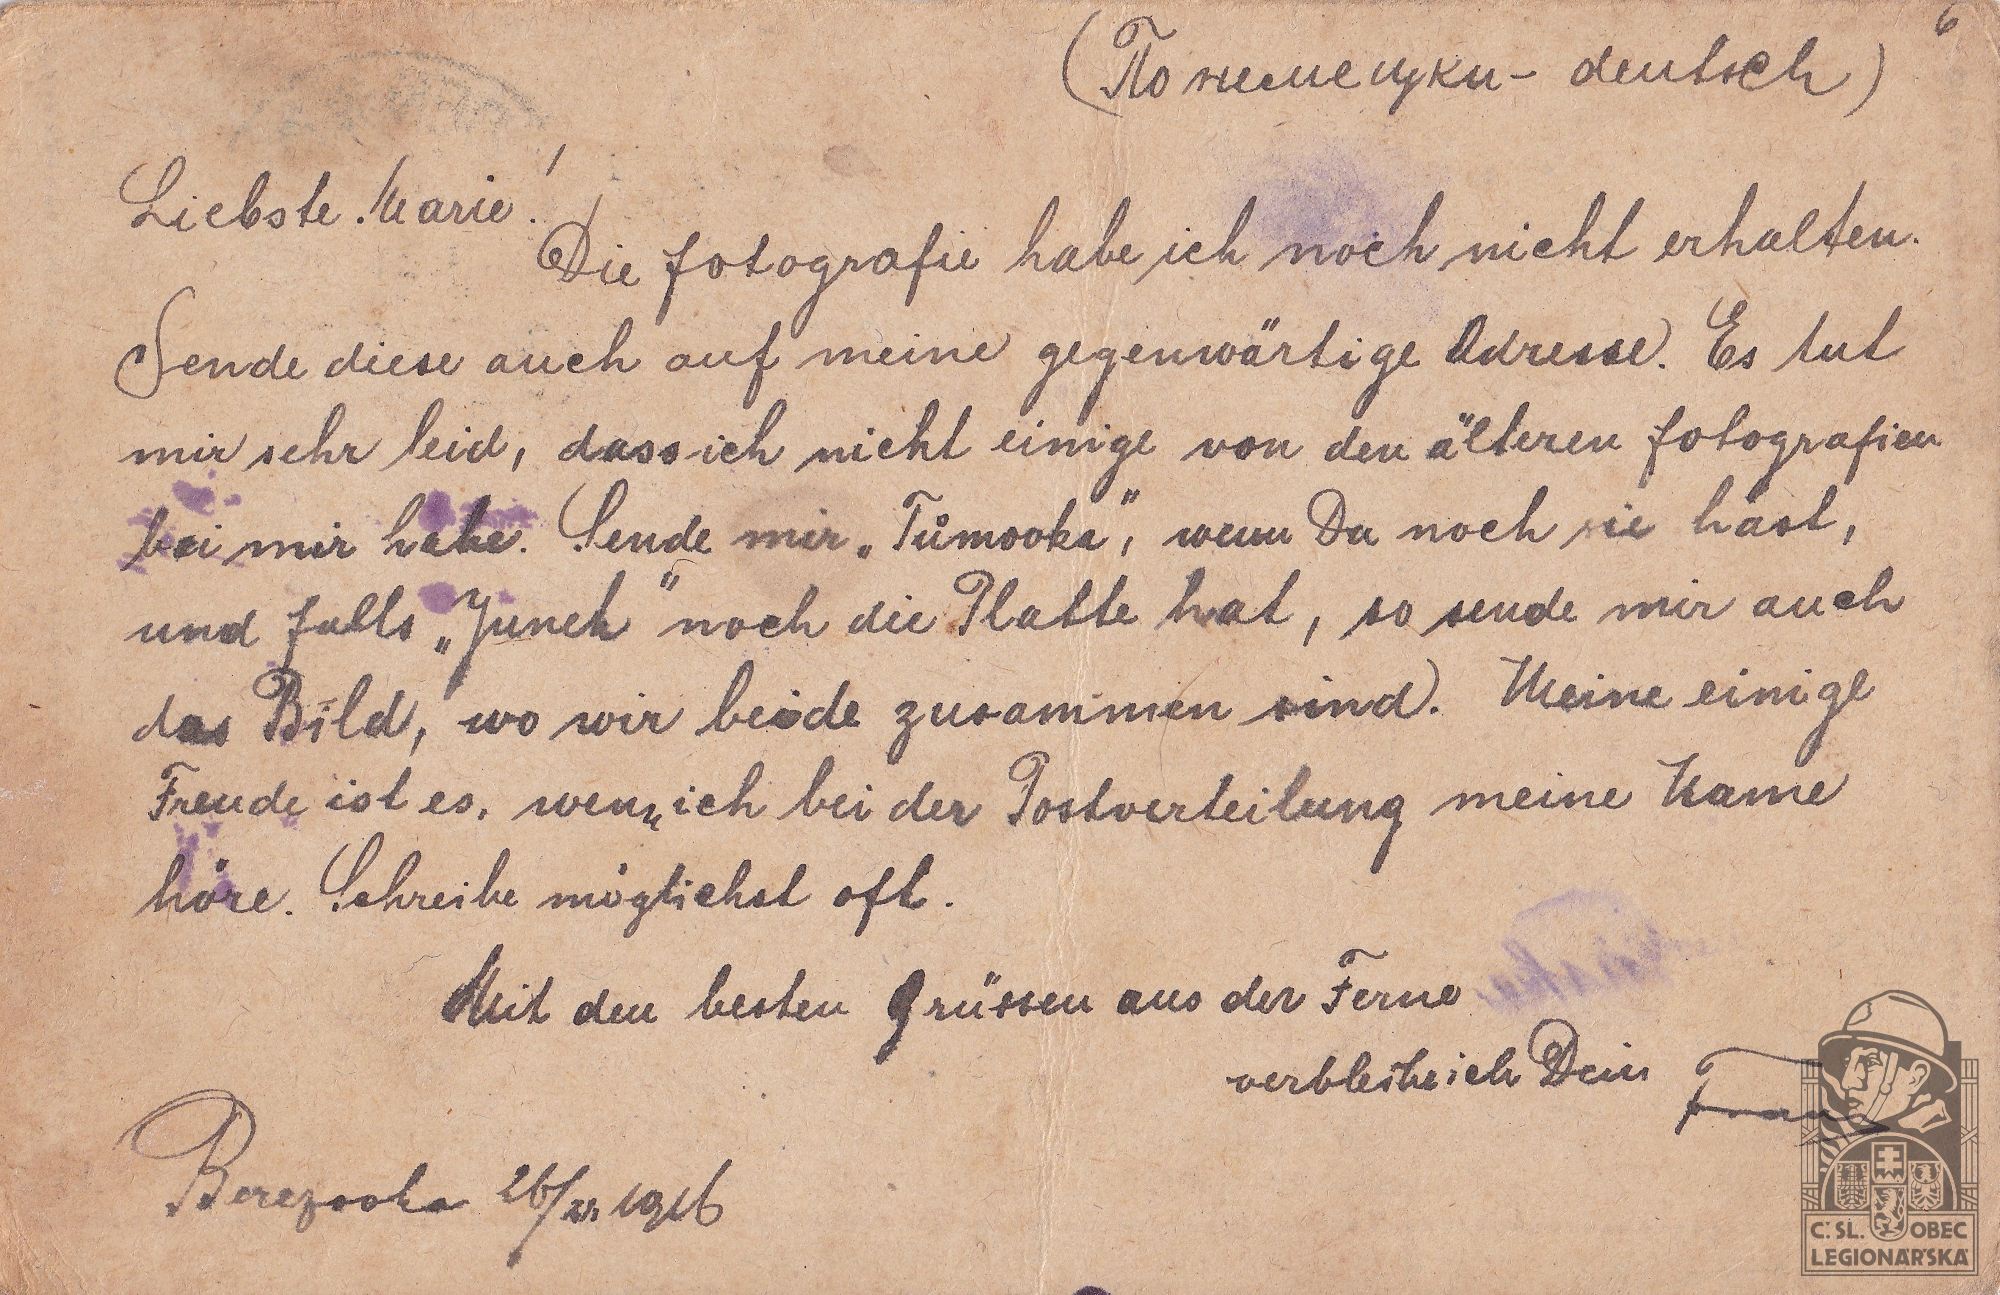 (По немецки – deutsch)
6
Liebste Marie!
Die fotografie habe ich noch nicht erhalten.
Sende diese auch auf meine gegenwärtige Adresse. Es tut
mir sehr leid, dass ich nicht einige von den älteren fotografien
bei mir habe. Sende mir „Tůmovka", wenn Du noch sie hast,
und falls „Junek" noch die Platte hat, so sende mir auch
das Bild, wo wir beide zusammen sind. Meine einige
Freude ist es, wenn ich bei der Postverteilung meine Name
höre. Schreibe möglichst oft.
Mit den besten Grüssen aus der Ferne
verbleibe ich Dein
Berezovka 26/ 1916
Č.SL. OBEC
LEGIONÁŘSKÁ